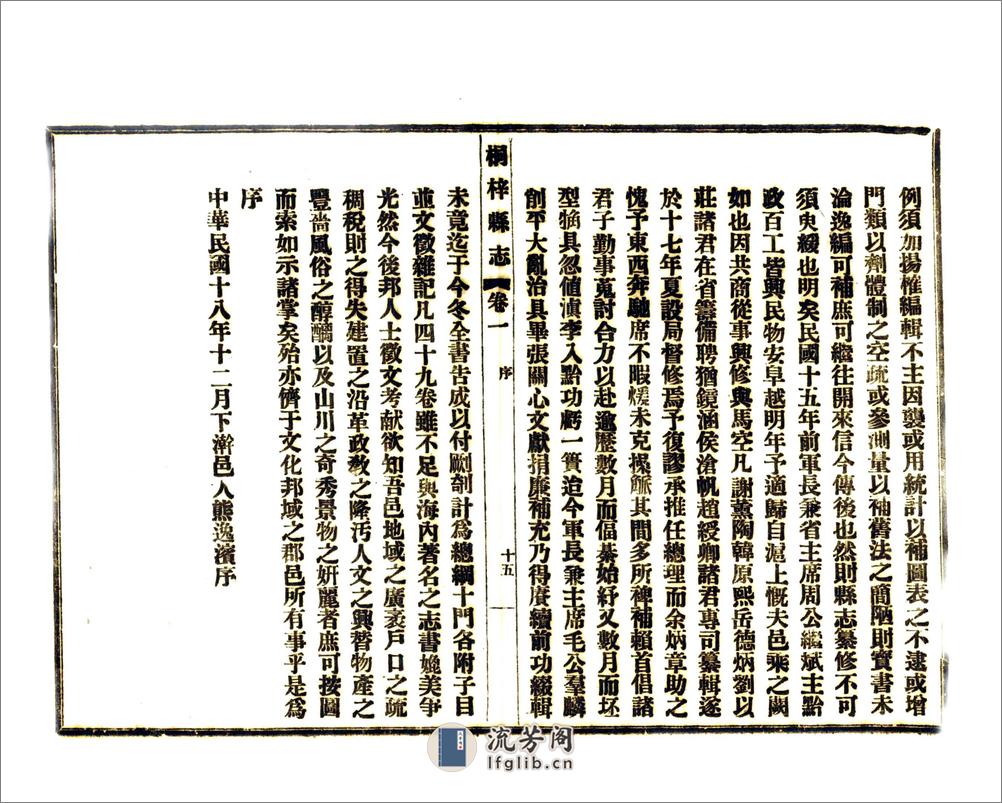 例須加揚榷編輯不主因襲或用統計以補圖表之不逮或增
門類以劑體制之空疏或參測量以補舊法之簡陋則實書未
淪逸編可補庶可繼往開來信今傳後也然則縣志纂修不可
須臾緩也明矣民國十五年前軍長兼省主席周公繼斌主黔
政百工皆興民物安阜越明年予適歸自滬上慨夫邑乘之闕
如也因共商從事興修與馬空凡謝薰陶韓原熙岳德炳劉以
莊諸君在省籌備聘猶鏡涵侯滄帆趙綬卿諸君專司纂輯遂
於十七年夏設局督修焉予復謬承推任總理而余炳章助之
愧予東西奔馳席不暇煖未克操觚其間多所裨補賴首倡諸
君子勤事蒐討合力以赴邀歷數月而偪綦始紓又數月而坯
型觕具忽値滇李入黔功虧一簣迨今軍長兼主席毛公羣麟
削平大亂治具畢張關心文獻捐廉補充乃得賡續前功綴輯
桐梓縣志 卷一 序 十五
未竟迄于今冬全書告成以付劂剞計爲總綱十門各附子目
並文徵雜記凡四十九卷雖不足與海內著名之志書媲美爭
光然今後邦人士徵文考献欲知吾邑地域之廣袤戶口之疏
稠稅則之得失建置之沿革政敎之隆汚人文之興替物產之
豐嗇風俗之醇醨以及山川之奇秀景物之妍麗者庶可按圖
而索如示諸掌矣殆亦儕于文化邦域之郡邑所有事乎是爲
序
中華民國十八年十二月下澣邑人熊逸濱序
流芳阁
lfglib.cn